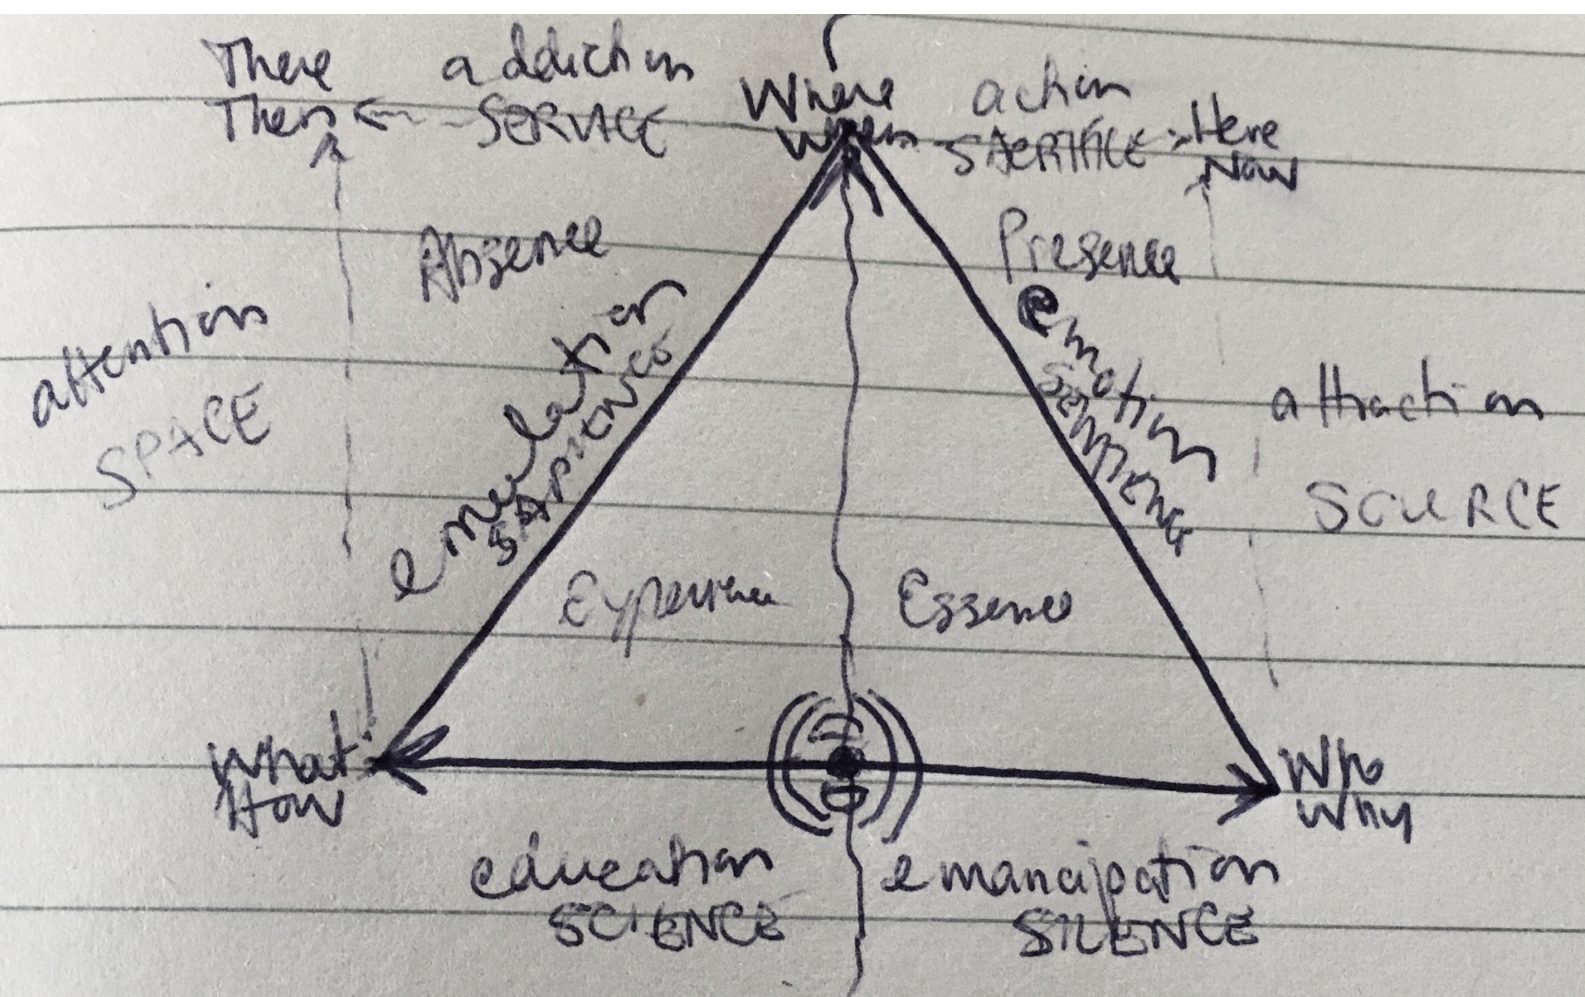 There
Then
addiction
SERVICE
Where
When
action
SACRIFICE
Here
Now
Absence
Presence
attention
SPACE
emulation
SAPIENCE
emotion
attraction
SOURCE
Experience
Essence
What
How
Who
Why
education
SCIENCE
emancipation
SILENCE